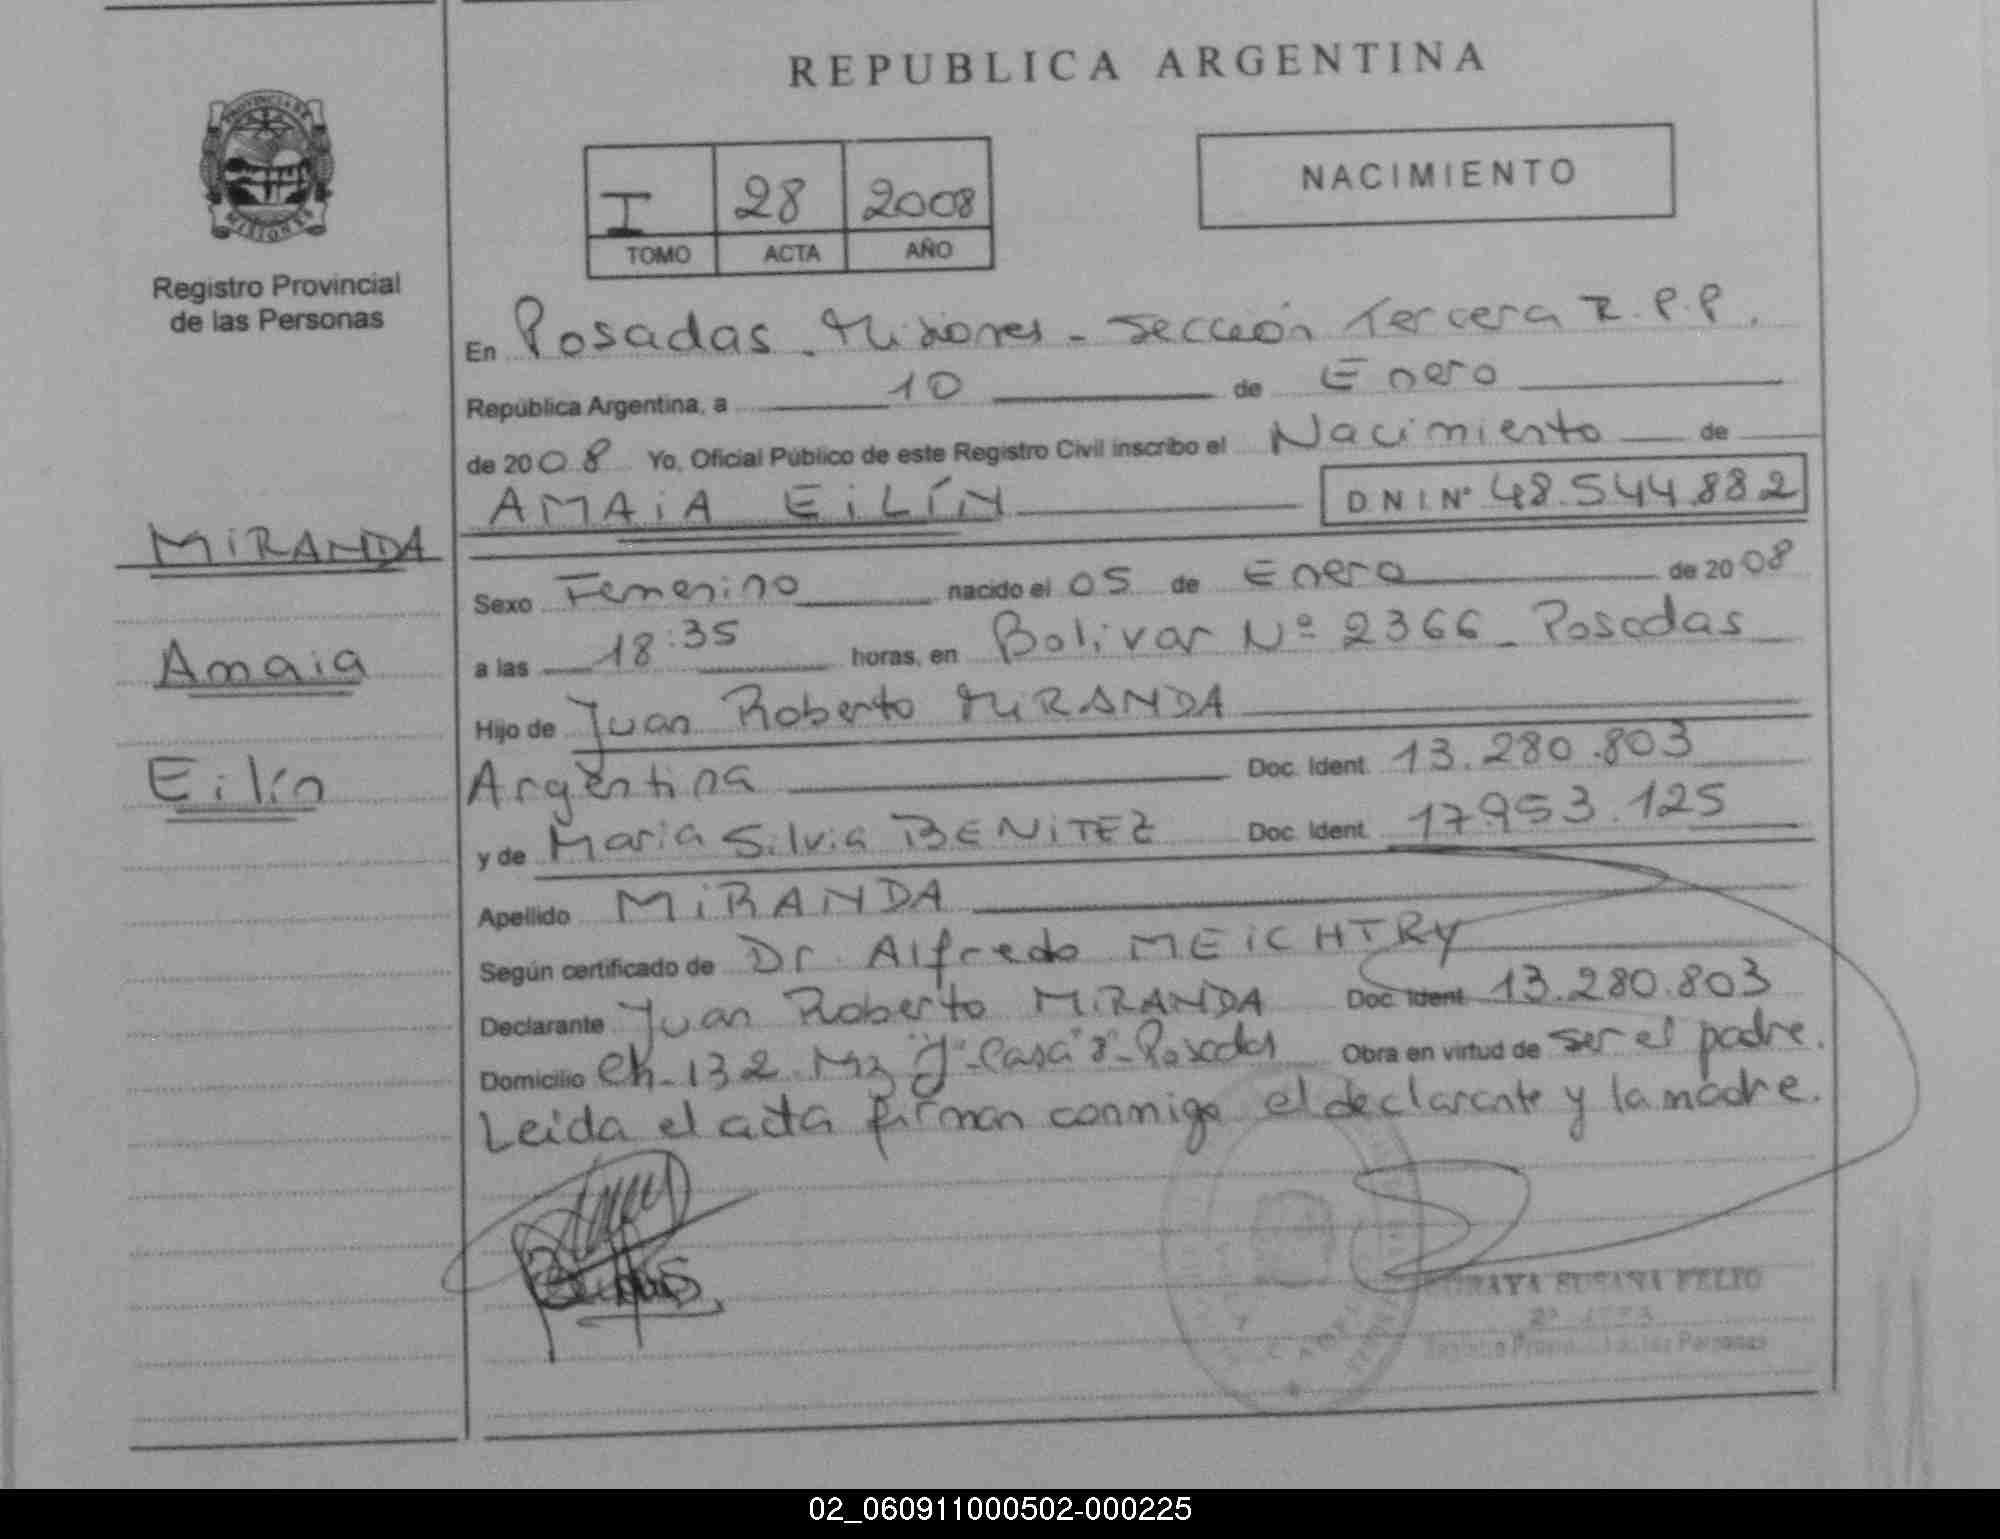 REPUBLICA ARGENTINA
PROVINCIA DE
MISIONES
Registro Provincial
de las Personas
I 28 2008
TOMO ACTA AÑO
NACIMIENTO
En Posadas - Misiones - Sección Tercera R.P.P.
República Argentina, a 10 de Enero
de 2008 Yo, Oficial Público de este Registro Civil inscribo el Nacimiento de
AMAiA EiLÍN D N I N° 48.544.882
MiRANDA
Amaia
Eilín
Sexo Femenino nacido el 05 de Enero de 2008
a las 18:35 horas, en Bolivar Nº 2366 - Posadas
Hijo de Juan Roberto MiRANDA
Argentina Doc. Ident. 13.280.803
y de Maria Silvia BENiTEZ Doc. Ident. 17.953.125
Apellido MiRANDA
Según certificado de Dr. Alfredo MEiCHTRY
Declarante Juan Roberto MiRANDA Doc. Ident. 13.280.803
Domicilio Ch - 132 - Mz "J" - Casa - Posadas Obra en virtud de ser el padre.
Leida el acta firman conmigo el declarante y la madre.
SUSANA FELIO
de las Personas
02_060911000502-000225